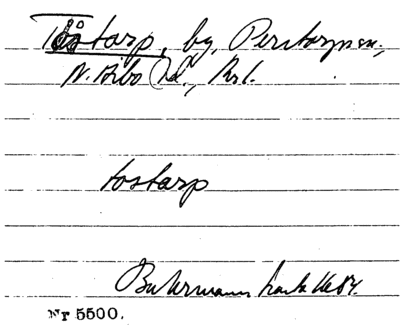 Tåstarp, by, Perstorps sn.,
N. Åsbo hd., Krl.
tostarp
Buhrmanns karta 1684.
Nr 5500.